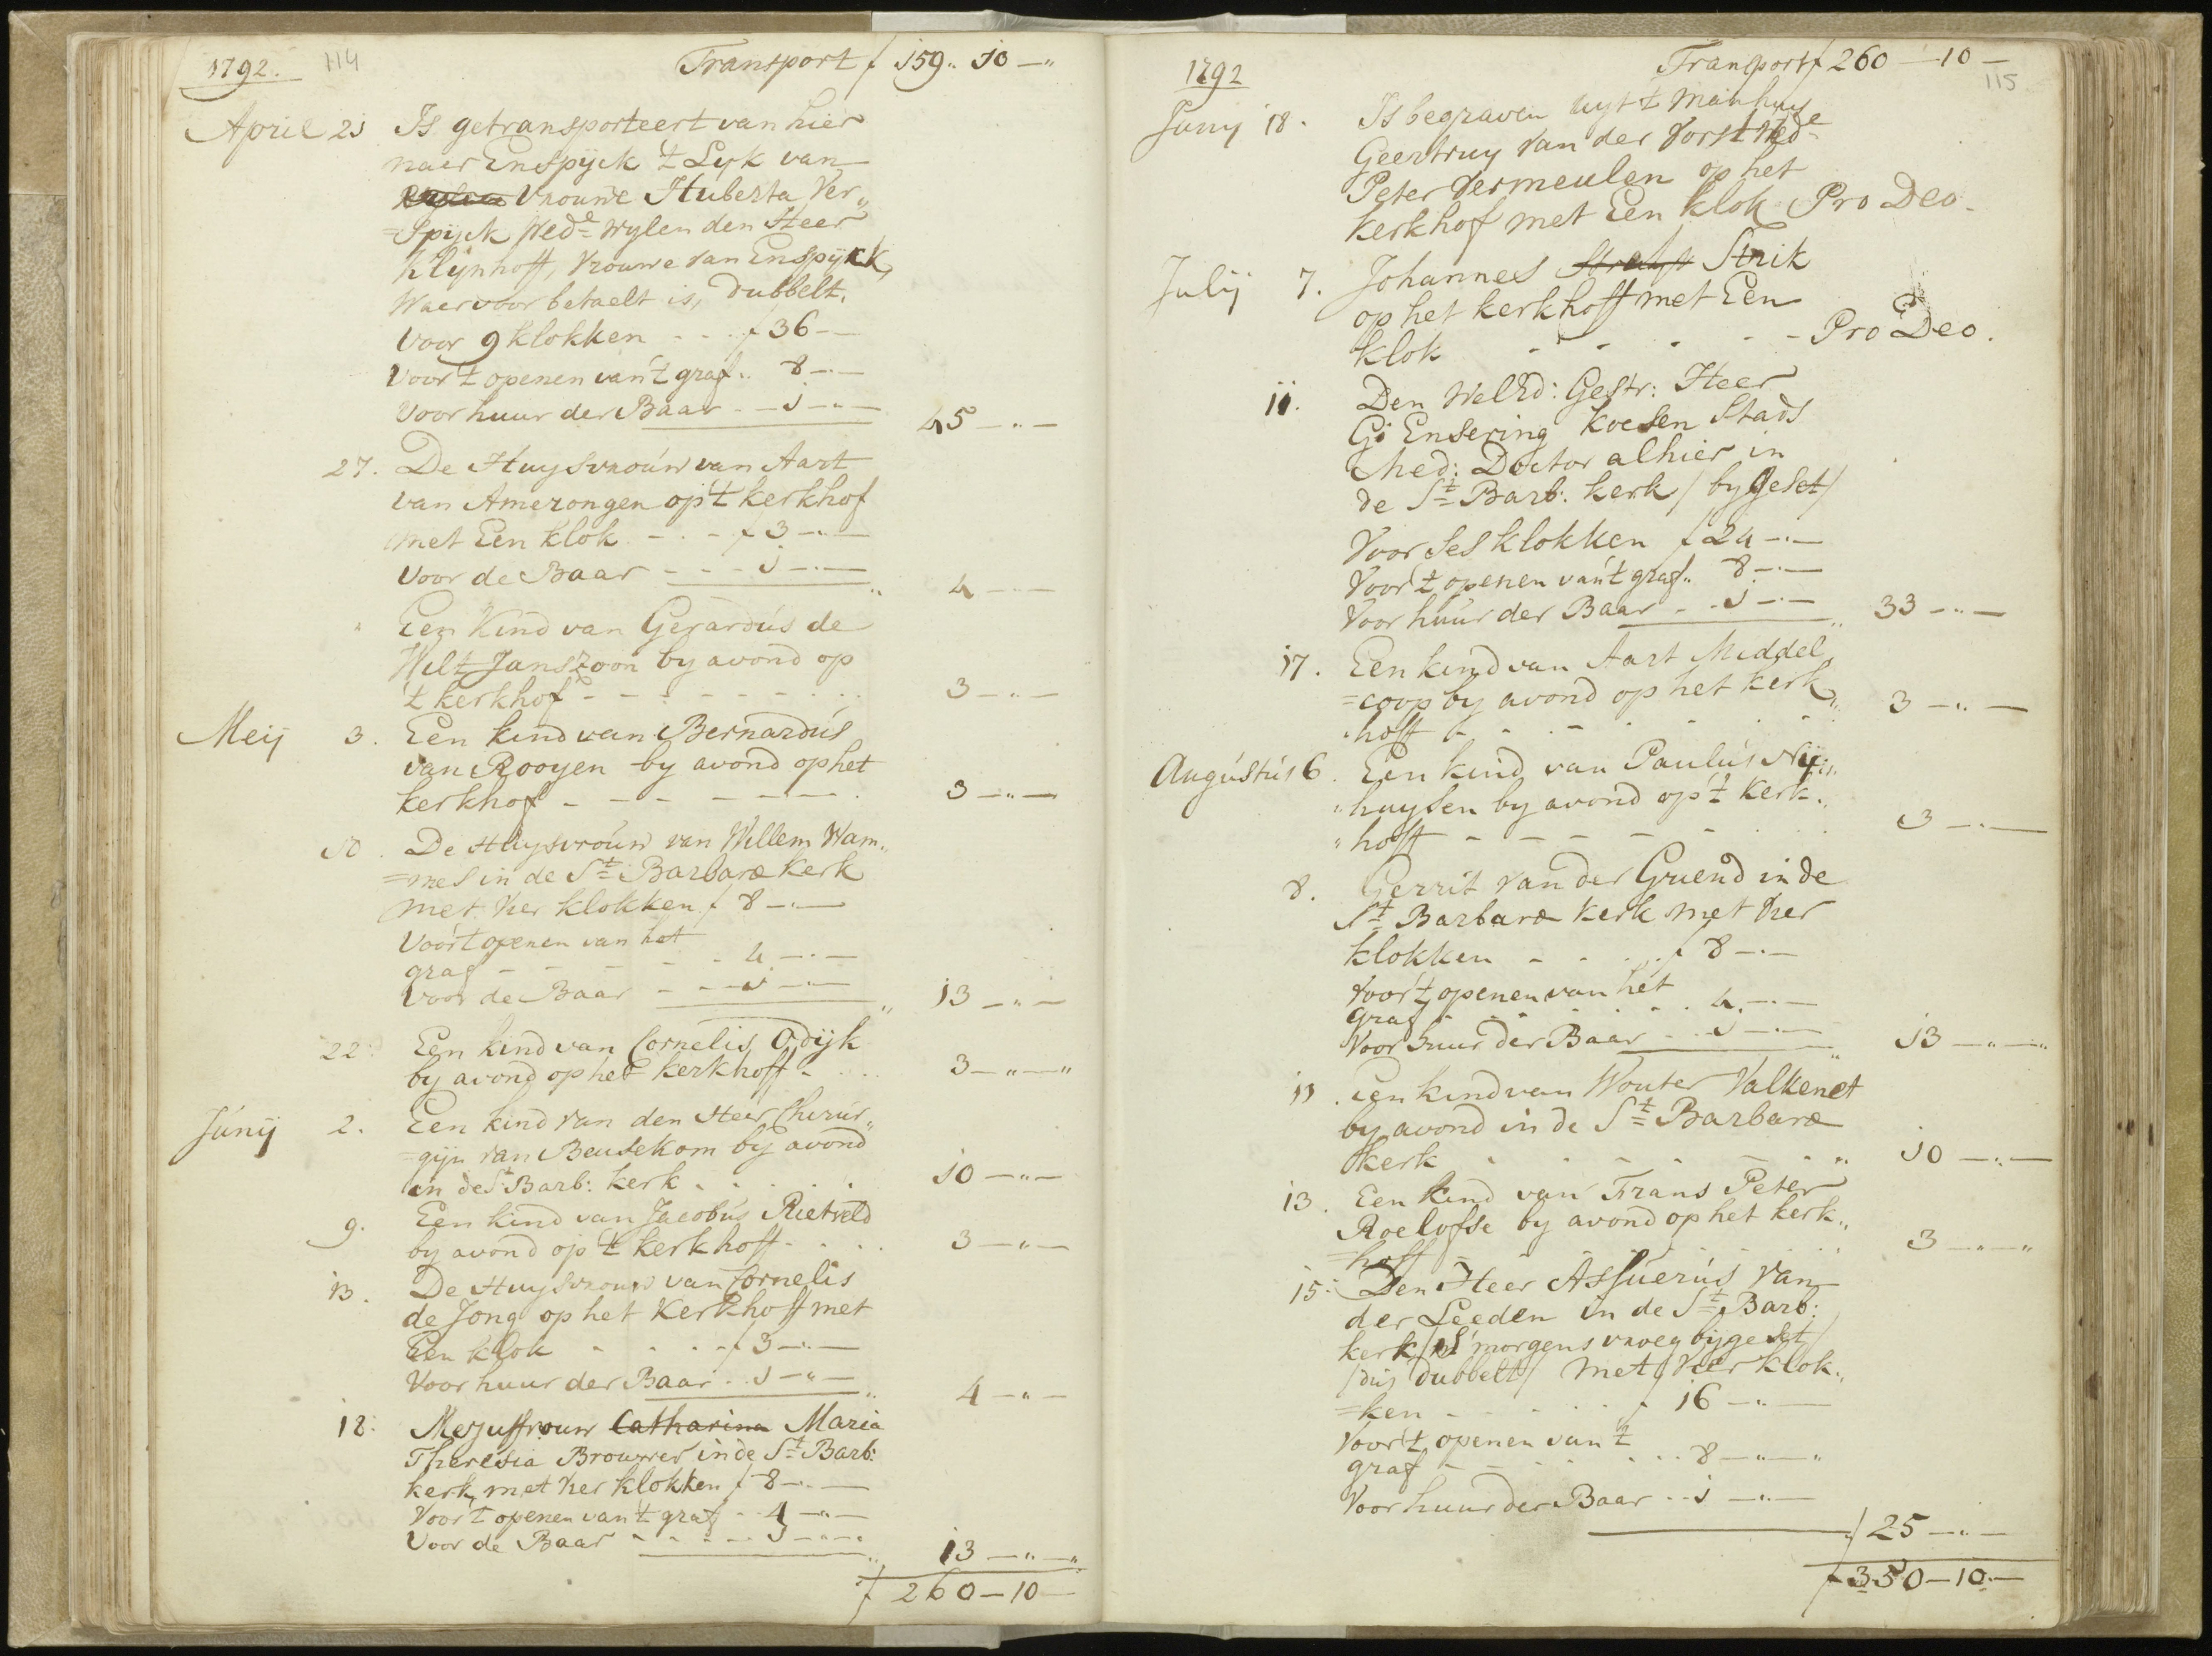 1792. 114 Transport ƒ 159.. 10 —"
April 21 Is getransporteert van hier
naer Enspyck 't Lyk van
Vrouwe Huberta Ver„
=Spijck Wed.e Wylen den Heer
Klijnhoff, Vrouwe van Enspyck,
Waervoor betaelt is, Dubbelt.
Voor 9 klokken - - ƒ 36 -
Voor 't openen van 't graf.. 8 - -
Voor huur der Baar - - 1 - -
45 - " -
27. De Huysvrouw van Aart
van Amerongen op 't kerkhof
met Een klok - - ƒ 3 - -
Voor de Baar - - - 1 - -
4 - -
" Een Kind van Gerardus de
Wilt Janszoon by avond op
't kerkhof - - - - - - 3 - " -
Meij 3. Een kind van Bernardus
van Rooyen by avond op het
kerkhof - - - - - - 3 - " -
10. De Huysvrouw van Willem Ham„
=mes in de St. Barbaræ Kerk
met vier klokken ƒ 8 - -
Voor 't openen van het
graf - - - - - 4 - -
Voor de Baar - - - 1 - -
13 - " -
22. Een kind van Cornelis Odijk
by avond op het kerkhoff - . . . 3 - " - "
Junij 2. Een kind van den Heer Chirur„
=gijn van Beusekom by avond
in de St. Barb: kerk . . . . . 10 - " -
9. Een kind van Jacobus Rietveld
by avond op 't kerkhoff - . . . 3 - " -
13. De Huysvrouw van Cornelis
de Jong op het Kerkhoff met
Een klok - - - - ƒ 3 - -
Voor huur der Baar . . 1 - " -
4 - " -
18. Mejuffrouw Catharina Maria
Theresia Brouwer in de St. Barb:
kerk met vier klokken ƒ 8 - -
Voor 't openen van 't graf - - 4 - " -
Voor de Baar - - - - - 1 - - -
13 - " - "
ƒ 260 - 10 -
1792 Transport ƒ 260 - 10 -
115
Junij 18. Is begraven uyt 't Manhuys
Geertruy van der Vorst Wed.e
Peter Vermeulen op het
kerkhof met Een klok Pro Deo -
Julij 7. Johannes Strik
op het kerkhoff met Een
klok - - - - - Pro Deo.
11. Den WelEd: Gestr: Heer
G: Ensering Koesen Stads
Med: Doctor alhier in
de St. Barb: kerk / by geset /
Voor Ses klokken ƒ 24 - " -
Voor 't openen van 't graf.. 8 - -
Voor huur der Baar - - 1 - -
33 - " -
17. Een kind van Aart Middel„
=coop by avond op het kerk„
"hoff - - - - 3 - " -
Augustus 6. Een kind van Paulus Nij„
"huysen by avond op 't kerk„
"hoff - - - - - 3 - " -
8. Gerrit van der Gruend in de
St. Barbaræ kerk met vier
klokken - - - - ƒ 8 - -
Voor 't openen van het
graf . . . . . . . 4 - -
Voor huur der Baar - - 1 - -
13 - " - "
11. Een kind van Wouter Valkenet
by avond in de St. Barbaræ
kerk - - - - - " 10 - " -
13. Een kind van Frans Peter
Roelofse by avond op het kerk„
=hoff - - - - - 3 - " - "
15. Den Heer Assuerus van
der Leeden in de St. Barb:
kerk / 's morgens vroeg bijgeset /
/ dus dubbelt / met vier klok„
=ken - - - - - ƒ 16 - " -
Voor 't openen van 't
graf - - - - - 8 - " - "
Voor huur der Baar - - 1 - " -
ƒ 25 - " -
ƒ 350 - 10 -